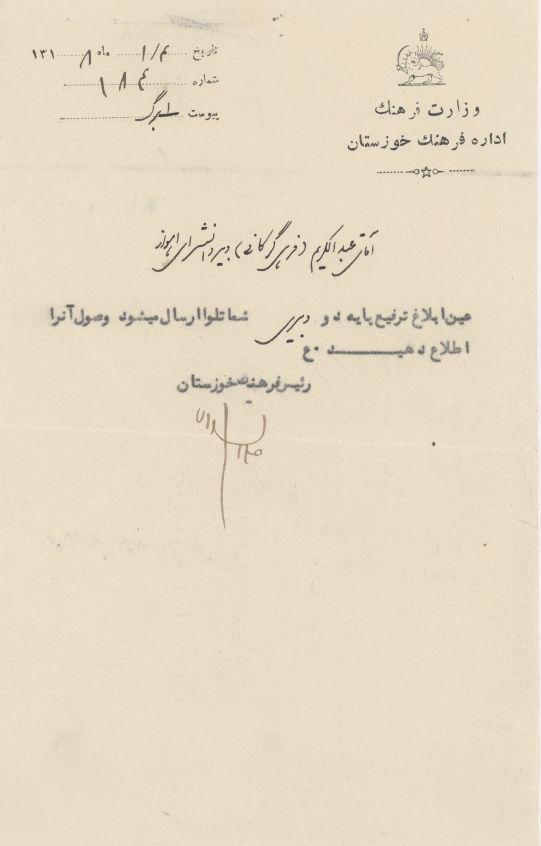 تاریخ ۴/ ۱ ماه ۸ ۱۳۱
شماره
پیوست ۱ برگ
وزارت فرهنك
اداره فرهنك خوزستان
آقای عبدالکریم (فرهی گرگانی) دبیر دانشسرای اهواز
عین ابلاغ ترفیع بپایه دو دبیری شما تلوا ارسال میشود وصول آنرا
اطلاع دهیـــــد ۰ع
رئیس فرهنك خوزستان